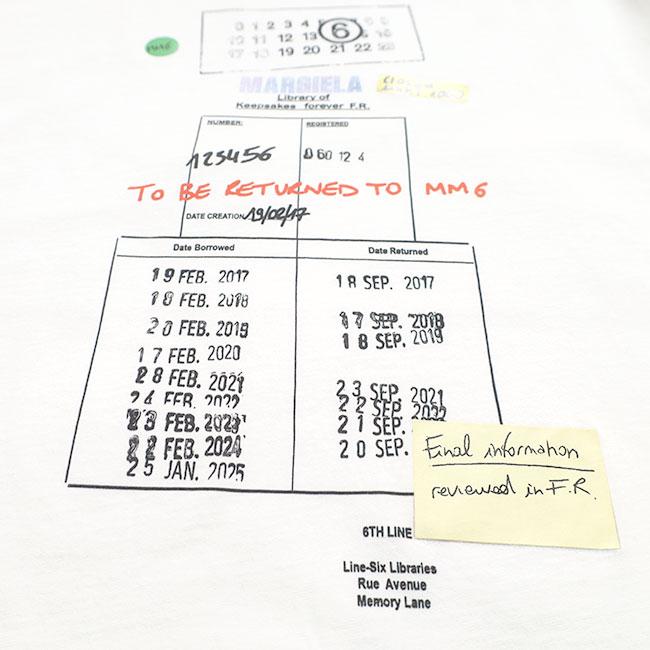 0 1 2 3 4 6
10 11 12 13 16
17 18 19 20 21 22 23
MM6
MARGIELA
Library of
Keepsakes forever F.R.
NUMBER: REGISTERED
123456 060 12 4
TO BE RETURNED TO MM6
DATE CREATION 19/02/17
Date Borrowed Date Returned
19 FEB. 2017 18 SEP. 2017
18 FEB. 2018 17 SEP. 2018
20 FEB. 2019 18 SEP. 2019
17 FEB. 2020
28 FEB. 2021 23 SEP. 2021
24 FEB. 2022 22 SEP. 2022
23 FEB. 2023 21 SEP.
22 FEB. 2024 20 SEP.
25 JAN. 2025
Final information
reviewed in F.R.
6TH LINE
Line-Six Libraries
Rue Avenue
Memory Lane